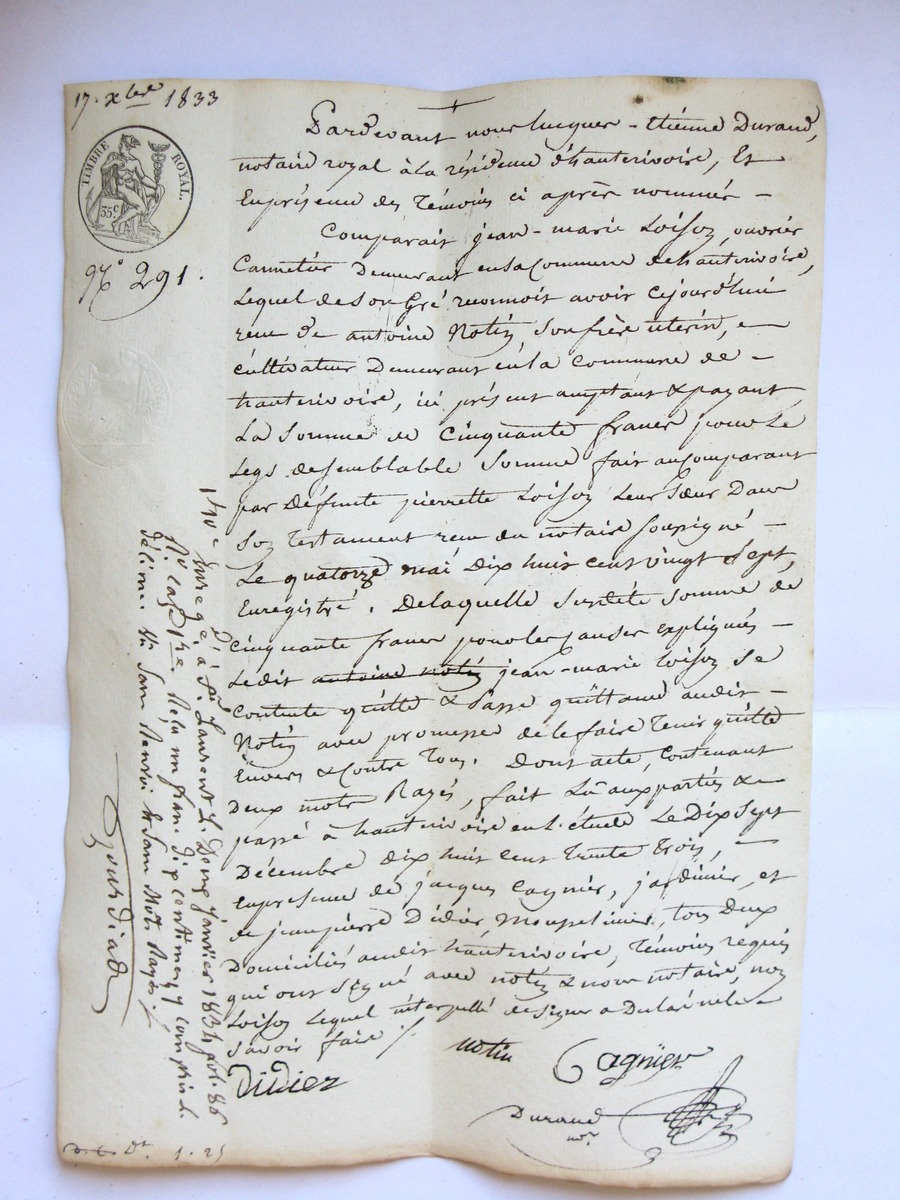 17. xbre 1833
TIMBRE ROYAL.
35 c
No 291.
Pardevant nous Jucques-Etienne Durand,
notaire royal à la résidence d'hauterivoire, Et
En présence des Témoins ci après nommés -
Comparait jean-marie Loison, ouvrier
Demeurant en sa Commune de hauterivoire,
Lequel de son Gré reconnoit avoir cejourd'hui
recu de antoine Notin, son frère utérin,
cultivateur Demeurant en la Commune de -
hauterivoire, ici présent acceptant & payant,
La Somme de Cinquante francs pour Le
Legs de semblable Somme fait au comparant
par Défunte pierrette Loison Leur Sœur Dans
son Testament recu du notaire soussigné -
Le quatorze mai Dix huit cent vingt Sept,
Enregistré. De laquelle Susdite somme de
Cinquante francs pour les causes expliqués -
Ledit antoine notin jean-marie Loison se
Contente quitte & Passe quittance audit -
Notin avec promesse de le faire Tenir quitte
Envers & contre Tous. Dont acte, Contenant
Deux mots Rayés, fait Lu aux parties &
passé à hauterivoire en l'étude Le Dix Sept
Décembre Dix huit Cent Trente Trois, -
En présence de jacques Cagnier, jardinier, et
de jean pierre Didier, tous Deux
Domiciliés audit hauterivoire, Témoins requis
qui ont signé avec notin & nous notaire, non
Loison Lequel interpellé de signer a Declaré ne le
savoir faire ./.
notin
Cagnier
Didier
Durand
nre
Enregé. à St. Laurent L. Deux janvier 1834 fol. 86
Ro case 1re Reçu un franc dix centimes y compris le
Décime. Sans Renvoi & Sans Mots Rayés ./.
Dt 1.25